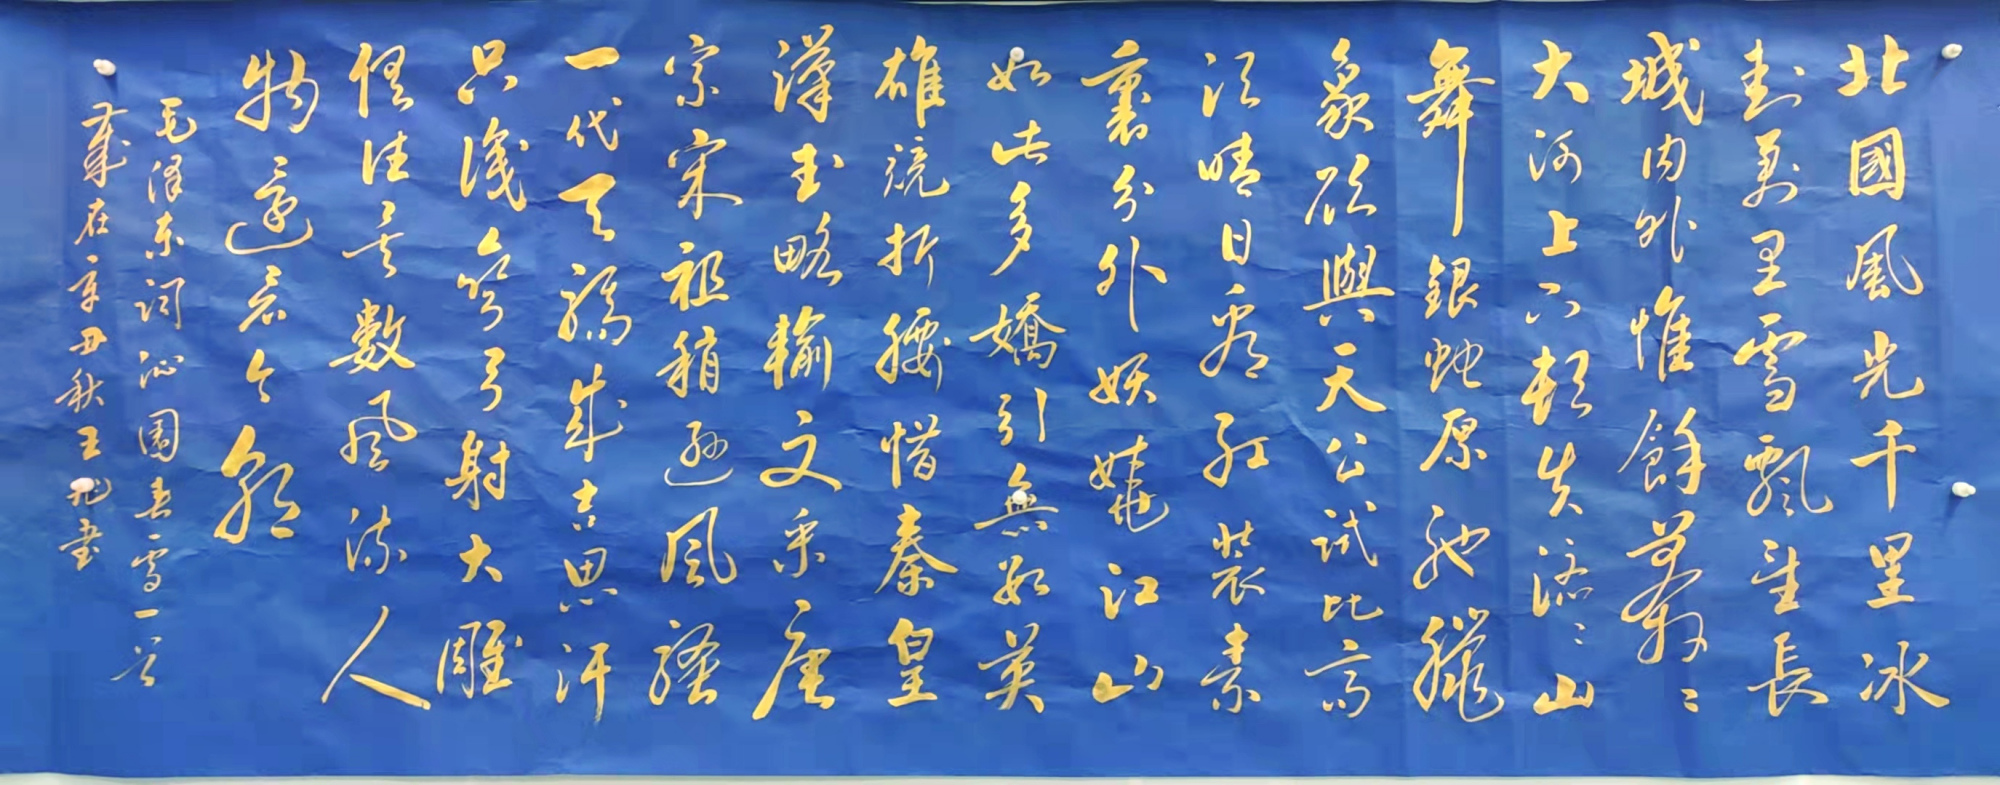 北國風光千里冰
封萬里雪飄望長
城内外惟餘莽〻
大河上下頓失滔〻山
舞銀蛇原馳臘
象欲與天公試比高
須晴日看紅裝素
裹分外妖嬈江山
如此多嬌引無數英
雄競折腰惜秦皇
漢武略輸文采唐
宗宋祖稍遜風騷
一代天驕成吉思汗
只識彎弓射大雕
俱往矣數風流人
物還看今朝
毛澤东詞沁園春雪一首
歲在辛丑秋王書